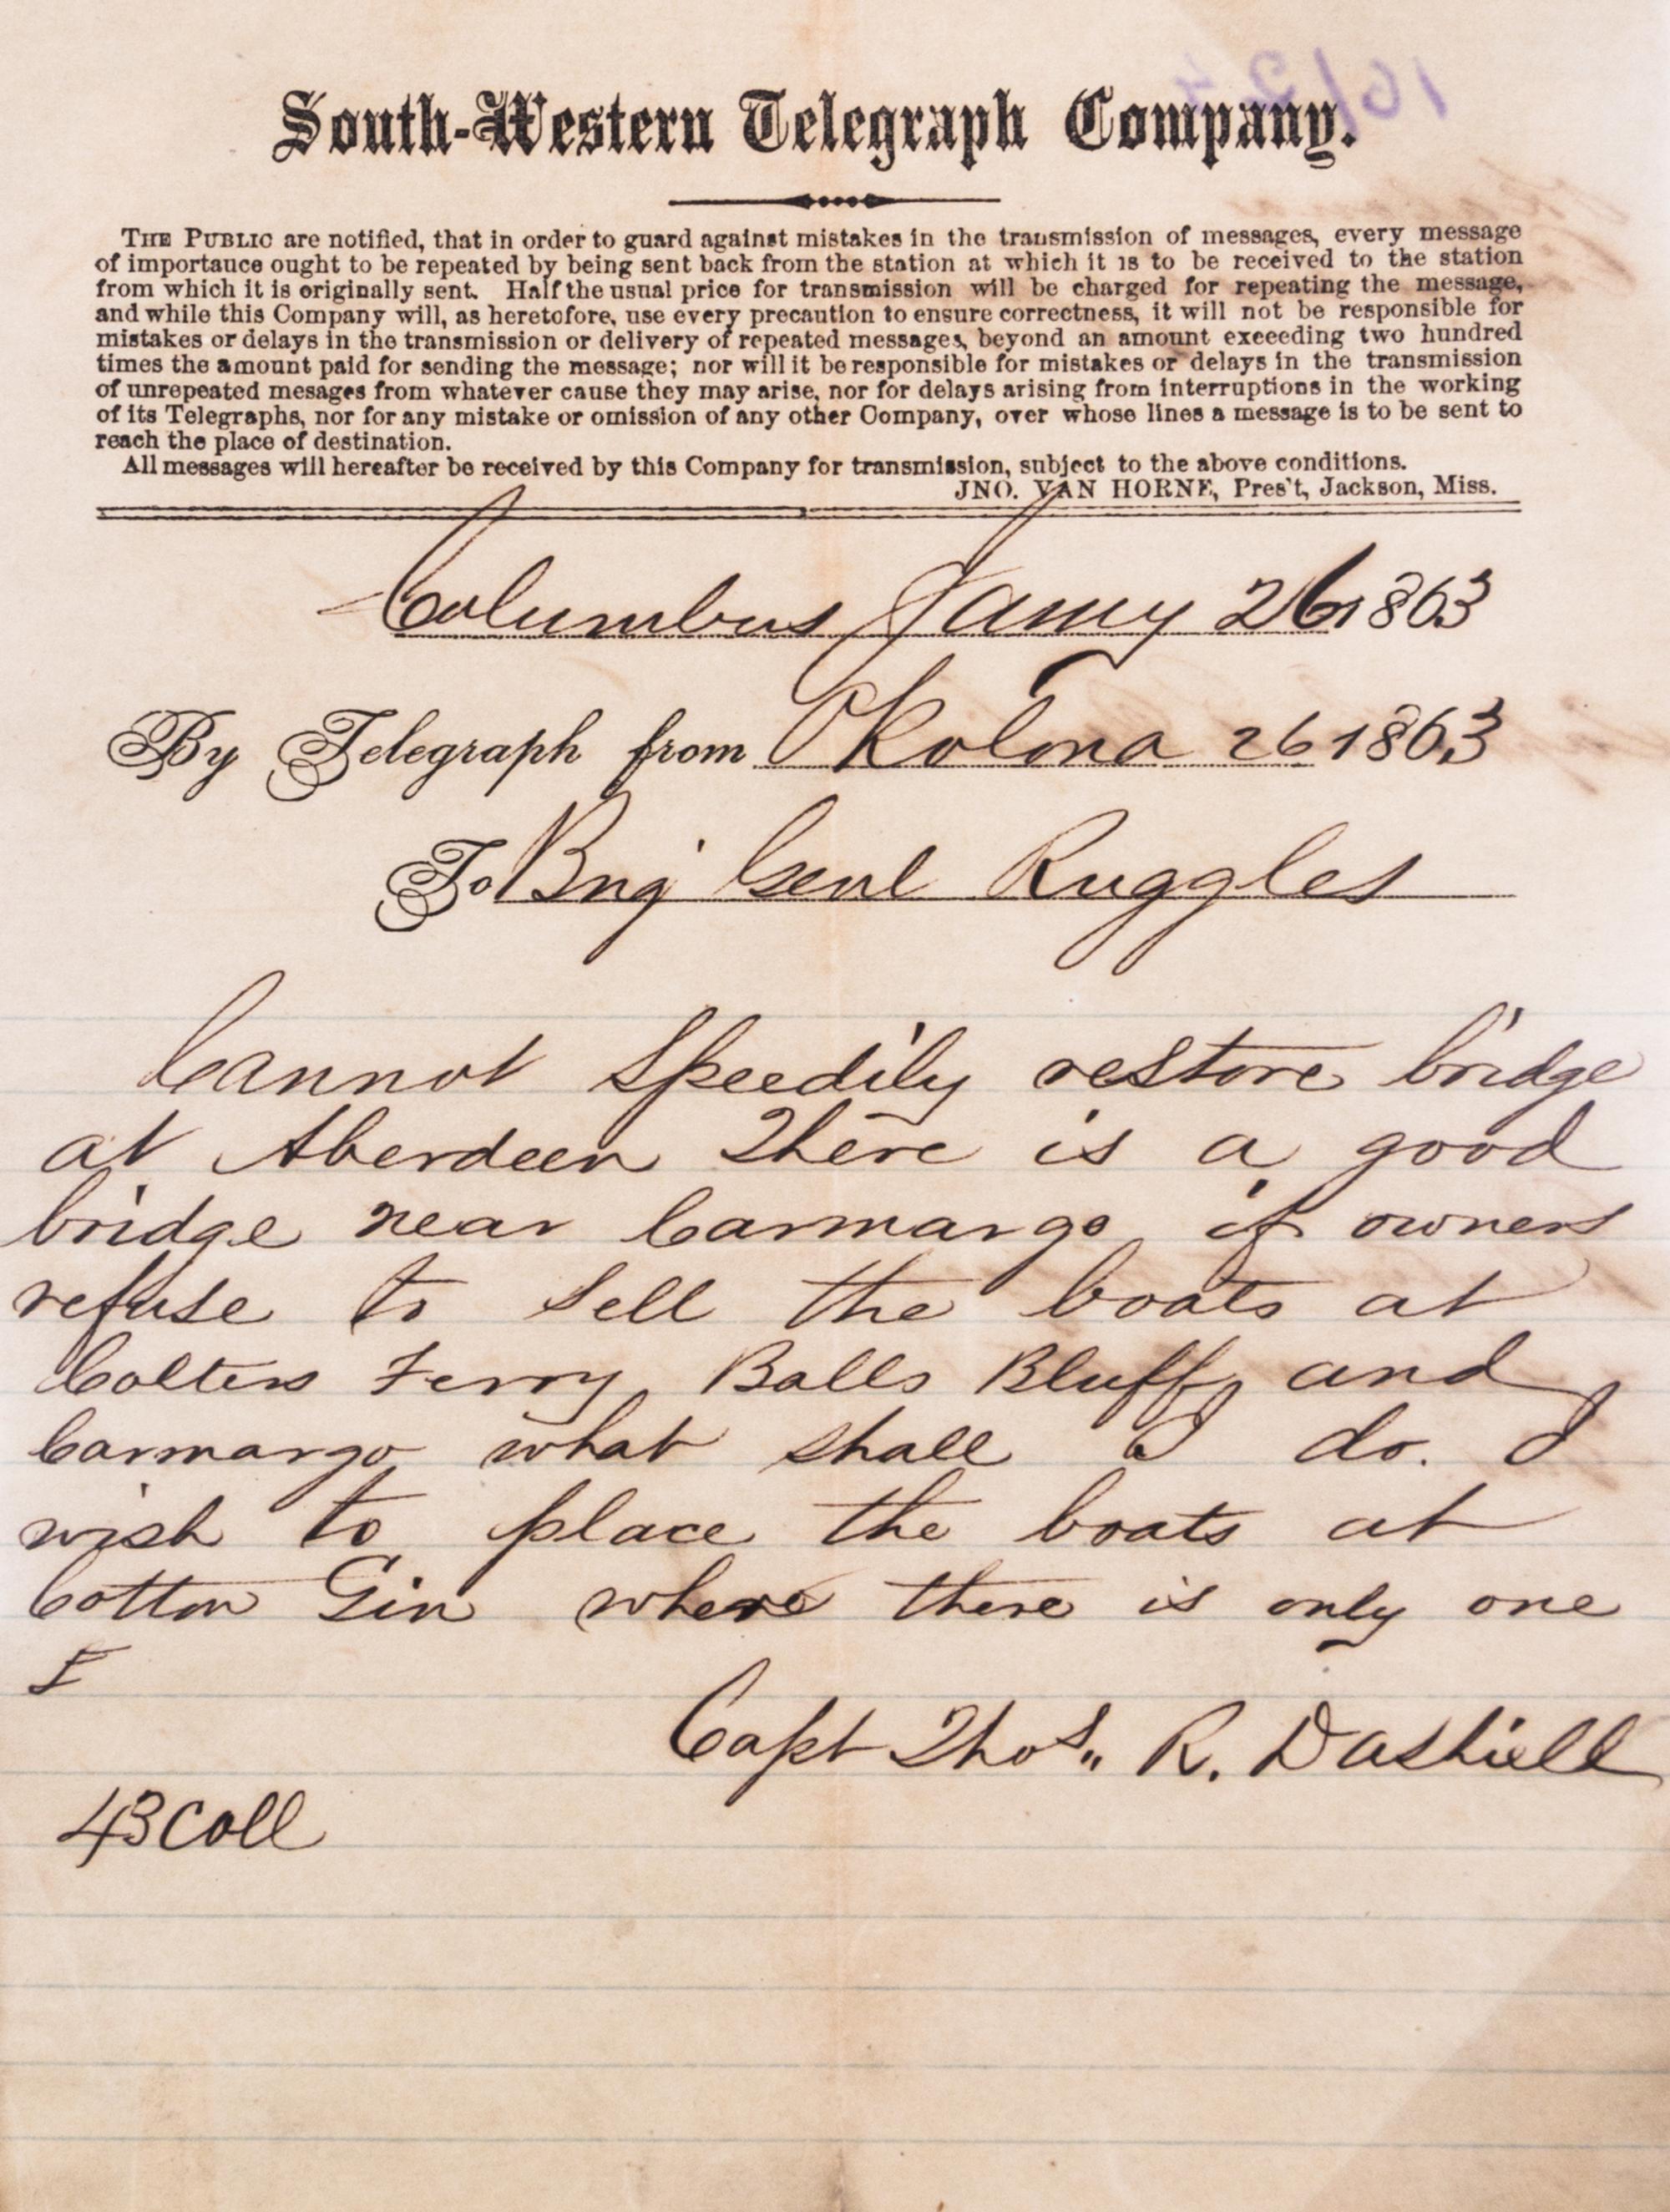 South-Western Telegraph Company.
THE PUBLIC are notified, that in order to guard against mistakes in the transmission of messages, every message
of importance ought to be repeated by being sent back from the station at which it is to be received to the station
from which it is originally sent. Half the usual price for transmission will be charged for repeating the message,
and while this Company will, as heretofore, use every precaution to ensure correctness, it will not be responsible for
mistakes or delays in the transmission or delivery of repeated messages, beyond an amount exceeding two hundred
times the amount paid for sending the message; nor will it be responsible for mistakes or delays in the transmission
of unrepeated mesages from whatever cause they may arise, nor for delays arising from interruptions in the working
of its Telegraphs, nor for any mistake or omission of any other Company, over whose lines a message is to be sent to
reach the place of destination.
All messages will hereafter be received by this Company for transmission, subject to the above conditions.
JNO. VAN HORNE, Pres't, Jackson, Miss.
Columbus Jany 26 1863
By Telegraph from Okolona 26 1863
To Brig Genl Ruggles
Cannot Speedily restore bridge
at Aberdeen There is a good
bridge near Carmargo if owners
refuse to sell the boats at
Colters Ferry Balls Bluff and
Carmargo what shall I do. I
wish to place the boats at
Cotton Gin where there is only one
Capt Thos,, R. Dashiell
43 Coll